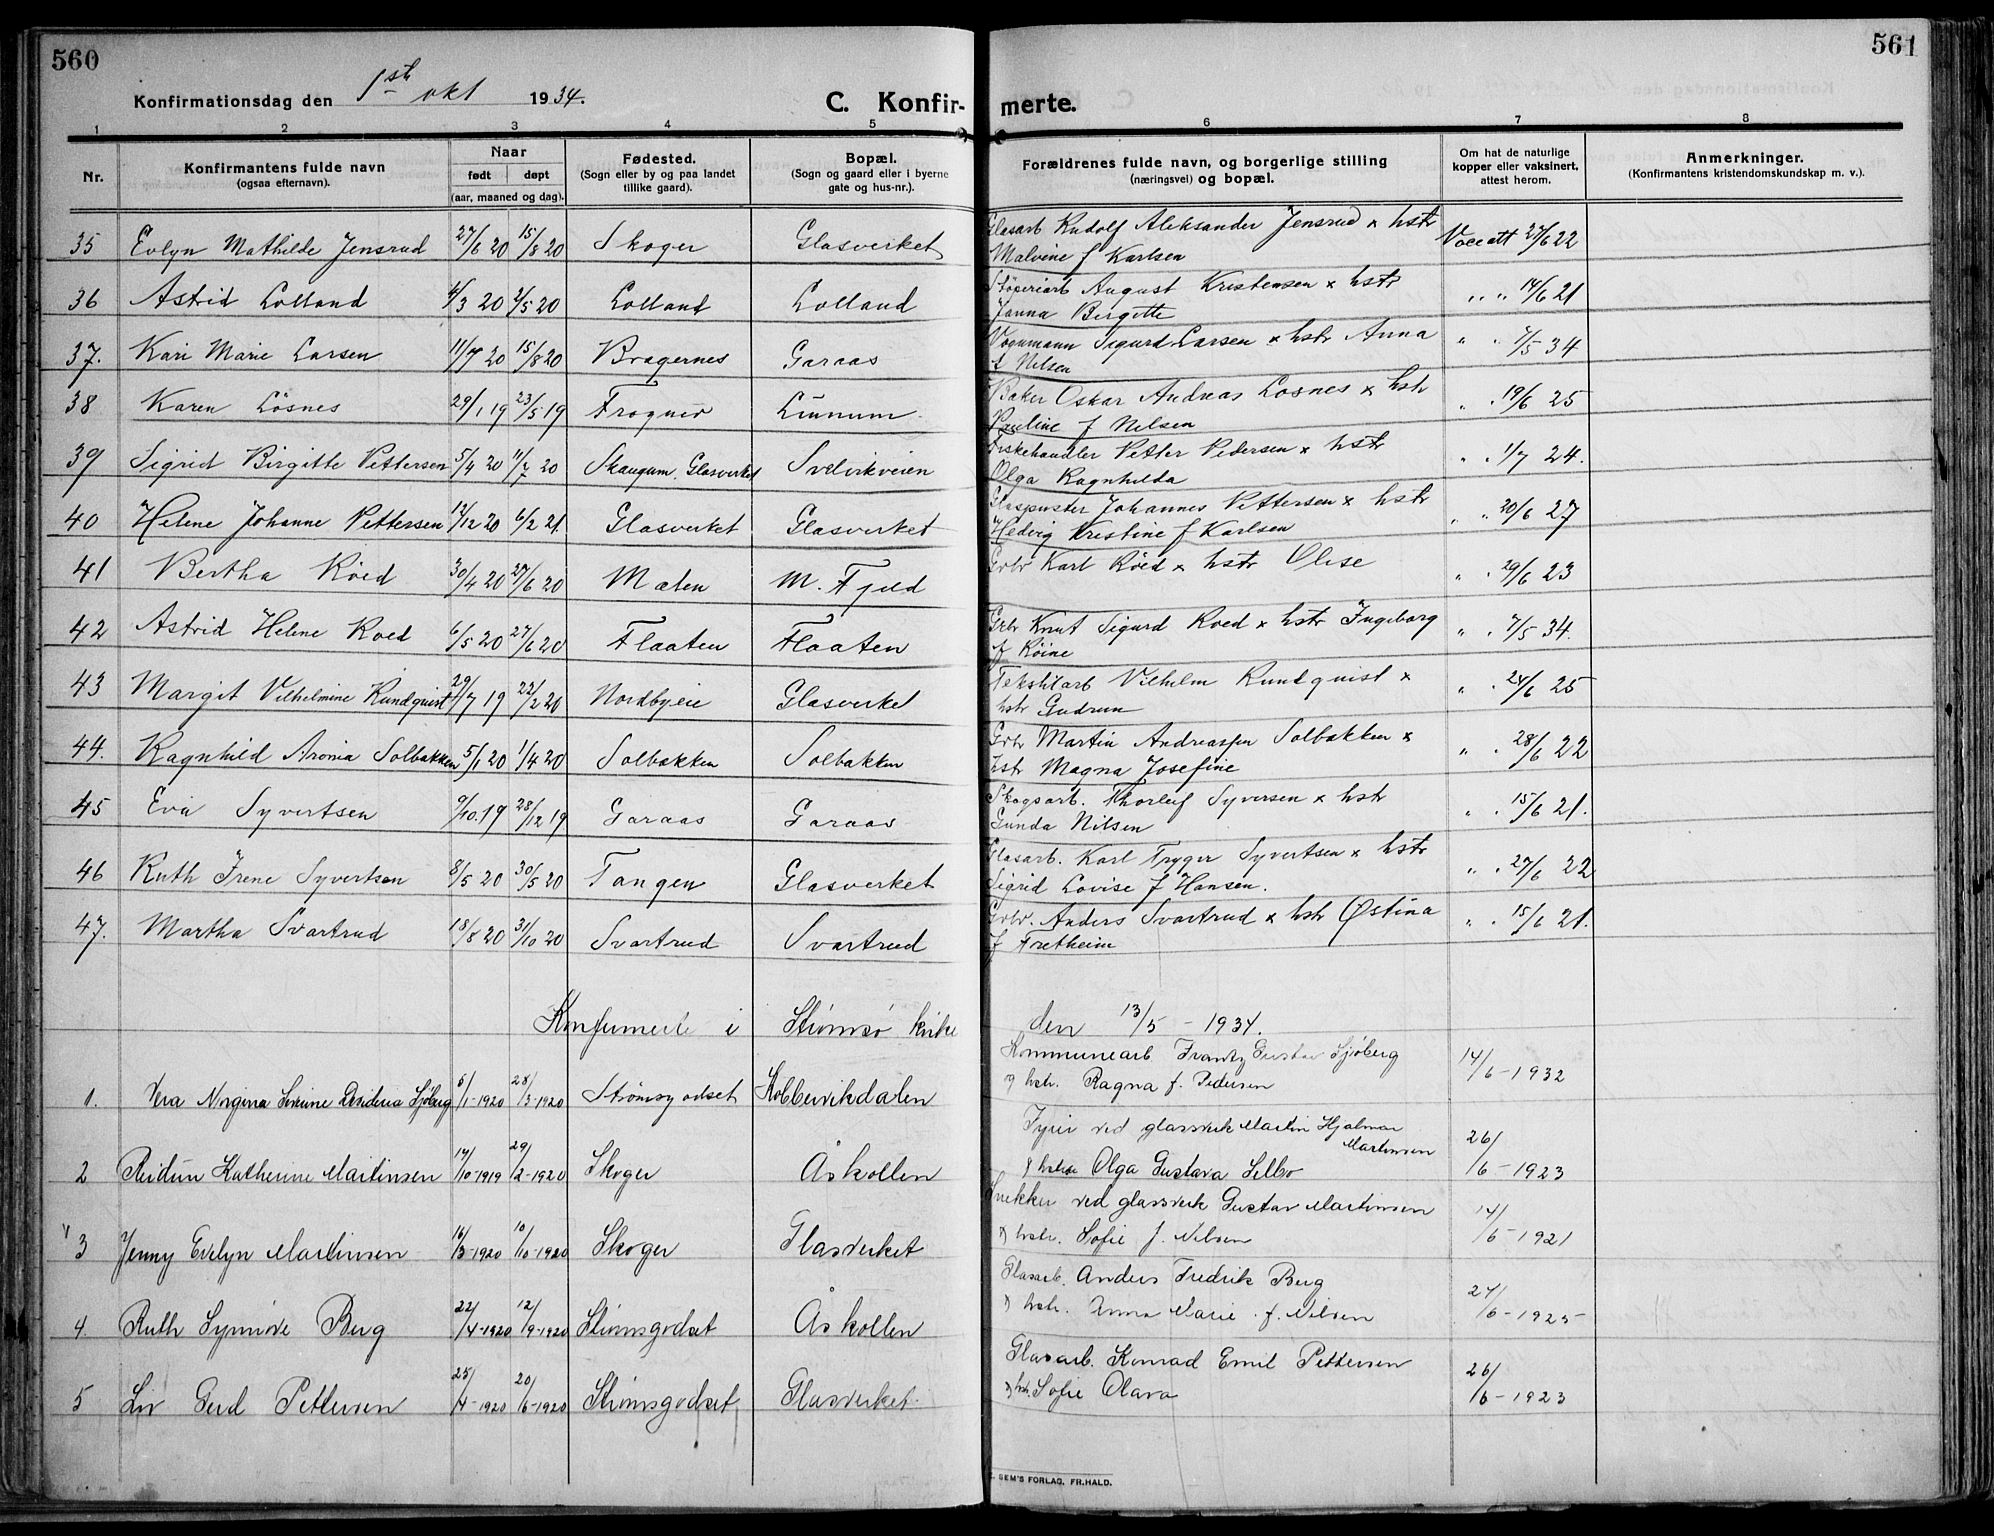 560
561
Konfirmationsdag den 1st okt 1934.
C. Konfir-
merte.
1 2 3 4 5 6 7 8
Nr.
Konfirmantens fulde navn
(ogsaa efternavn).
Naar
født døpt
(aar, maaned og dag).
Fødested.
(Sogn eller by og paa landet
tillike gaard).
Bopæl.
(Sogn og gaard eller i byerne
gate og hus-nr.).
Forældrenes fulde navn, og borgerlige stilling
(næringsvei) og bopæl.
Om hat de naturlige
kopper eller vaksinert,
attest herom.
Anmerkninger.
(Konfirmantens kristendomskundskap m. v.).
35 Evlyn Mathilde Jensrud 27/6 20 15/8 20 Skoger Glasverket Glasarb Rudolf Aleksander Jensrud x hstr
Malvine f Karlsen
36 Astrid Lolland 4/3 20 2/5 20 Lolland Lolland Støperiarb August Kristensen x hstr " " 14/6 21
Janna Birgitte
37. Kari Marie Larsen 11/7 20 15/8 20 Bragernes Garaas Vognmann Sigurd Larsen x hstr Anna " " 7/5 34
f Nelsen
38 Karen Løsnes 29/1 19 23/5 19 Frogner Lunum Baker Oskar Andreas Losnes x hstr " " 19/6 25
Pauline f Nelsen
39 Sigrid Birgitte Pettersen 5/4 20 11/7 20 Skaugum, Glasverket Svelvikveien Fiskehandler Petter Pedersen x hstr " " 1/7 24.
Olga Ragnhilda
40 Helene Johanne Pettersen 12/12 20 6/2 21 Glasverket Glasverket Glaspuster Johannes Pettersen x hstr " " 20/6 27
Hedvig Kristine f Karlsen
41 Bertha Røed 30/4 20 27/6 20 Maten M. Fjeld Grbr Karl Røed x hstr Olise " " 29/6 23
42 Astrid Helene Roed 6/5 20 27/6 20 Flaaten Flaaten Grbr Knut Sigurd Roed x hstr Ingeborg " " 7/5 34.
f Røine
43 Margit Vilhelmine Rundquist 29/7 19 22/2 20 Nordbyeie Glasverket Tekstilarb Vilhelm Rundquist x " " 24/6 25
hstr Gudrun
44. Ragnhild Aronia Solbakken 5/1 20 1/4 20 Solbakken Solbakken Grbr Martin Andreassen Solbakken x " " 28/6 22
hstr Magna Josefine
45 Eva Syvertsen 9/10.19 28/12 19 Garaas Garaas Skogsarb. Thorleif Syversen x hstr " " 15/6 21.
Gunda Nilsen
46 Ruth Irene Syvertsen 8/5 20 30/5 20 Tangen Glasverket Glasarb. Karl Tryger Syvertsen x hstr " " 27/6 22
Sigrid Lovise f Hansen.
47. Martha Svartrud 18/8 20 31/10 20 Svartrud Svartrud Grbr. Anders Svartrud x hstr Østina " " 15/6 21.
f Fretheim
Konfirmerte i Strømsø kirke den 13/5 - 1934.
1. Vera Norgina Severine Desideria Sjøberg 5/1-1920 28/3-1920 Strømsgodset Kobbervikdalen Kommunearb Frantz Gustav Sjøberg 14/6-1932
og hstr. Ragna f. Pedersen
2 Reidun Katherine Martinsen 14/10-1919 29/2-1920 Skoger Åskollen Fyrer ved glassverk Martin Hjalmar
Martinsen 26/6-1923
& hstr Olga Gustava Selbo
3 Jenny Evelyn Martinsen 16/3-1920 10/10-1920 Skoger Glasverket Snekker ved glassverk Gustav Martinsen 14/6-1921
& hstr. Sofie f. Nilsen
4. Ruth Synnøve Berg 22/4-1920 12/9-1920 Strømsgodset Åskollen Glasarb. Anders Fredrik Berg 24/6-1925
& hstr. Anna Marie f. Nilsen
5 Liv Gerd Pettersen 25/4-1920 20/6-1920 Strømsgodset Glasverket Glasarb. Konrad Emil Pettersen 26/6-1923
& hstr. Sofie Olava
SEM'S FORLAG, FR.HALD.